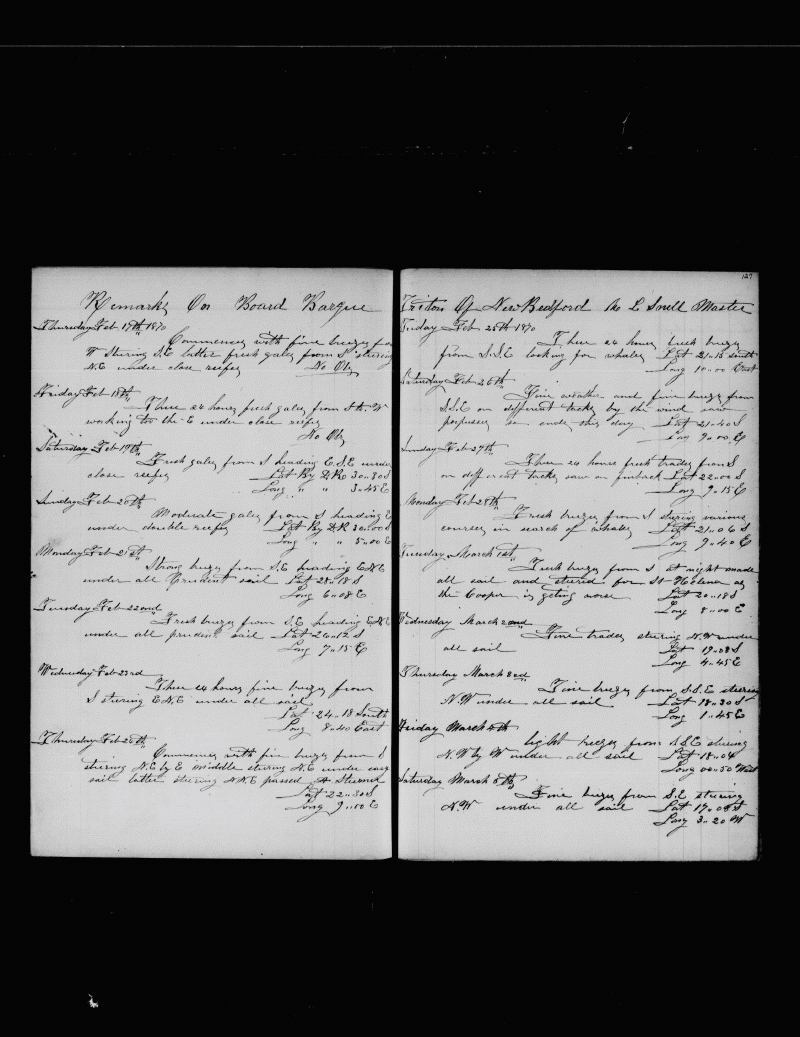 Remarks On Board Barque
Thursday Feb 17th 1870
Commences with fine breezes from
W Stering S.E latter fresh gales from S stering
N.E under close reefes No Obs
Friday Feb 18th
These 24 hours fresh gales from S to W
working to the E under close reefes
No Obs
Saturday Feb 19th
Fresh gales from S heading E.S.E under
close reefes Lat By D.R 30..30 S
Long " " 3..45 E
Sunday Feb 20th
Moderate gales from S heading E
under double reefes Lat By D.R 30..00 S
Long " " 5..00 E
Monday Feb 21st
Strong breezes from S.E heading E.N.E
under all Prudent sail Lat 28..18 S
Long 6..08 E
Tuesday Feb 22ond
Fresh breezes from S.E heading E.N.E
under all prudent sail Lat 26..12 S
Long 7..15 E
Wednesday Feb 23rd
These 24 hours fine breezes from
S stering E.N.E under all sail
Lat 24..18 South
Long 8..40 East
Thursday Feb 24th
Commences with fine breezes from S
stering N.E by E middle stering N.E under easy
sail latter stering N.N.E passed A Steamer
Lat 22..30 S
Long 9..50 E
127
Triton Of New Bedford L Snell Master
Friday Feb 25th 1870
These 24 hours fresh breezes
from S.S.E looking for whales Lat 21..15 south
Long 10..00 East
Saturday Feb 26th
Fine weather and fine breezes from
S.S.E on different tacks by the wind saw
porpuses so ends this day Lat 21..40 S
Long 9..00 E
Sunday Feb 27th
These 24 hours fresh trades from S
on different tacks saw a finback Lat 22..00 S
Long 9..15 E
Monday Feb 28th
Fresh breezes from S stering various
courses in search of whales Lat 21..06 S
Long 9..40 E
Tuesday March 1st
Fresh breezes from S at night made
all sail and stered for St Helena as
the Cooper is geting worse Lat 20..18 S
Long 8..00 E
Wednesday March 2ond
Fine trades stering N.W under
all sail Lat 19..08 S
Long 4..45 E
Thursday March 3rd
Fine breezes from S.S.E stering
N.W under all sail Lat 18..30 S
Long 1..45 E
Friday March 4th
Light breezes from S.S.E stering
N.W by W under all sail Lat 18..04
Long 00..50 West
Saturday March 5th
Fine breezes from S.E stering
N.W under all sail Lat 17..08 S
Long 3..20 W